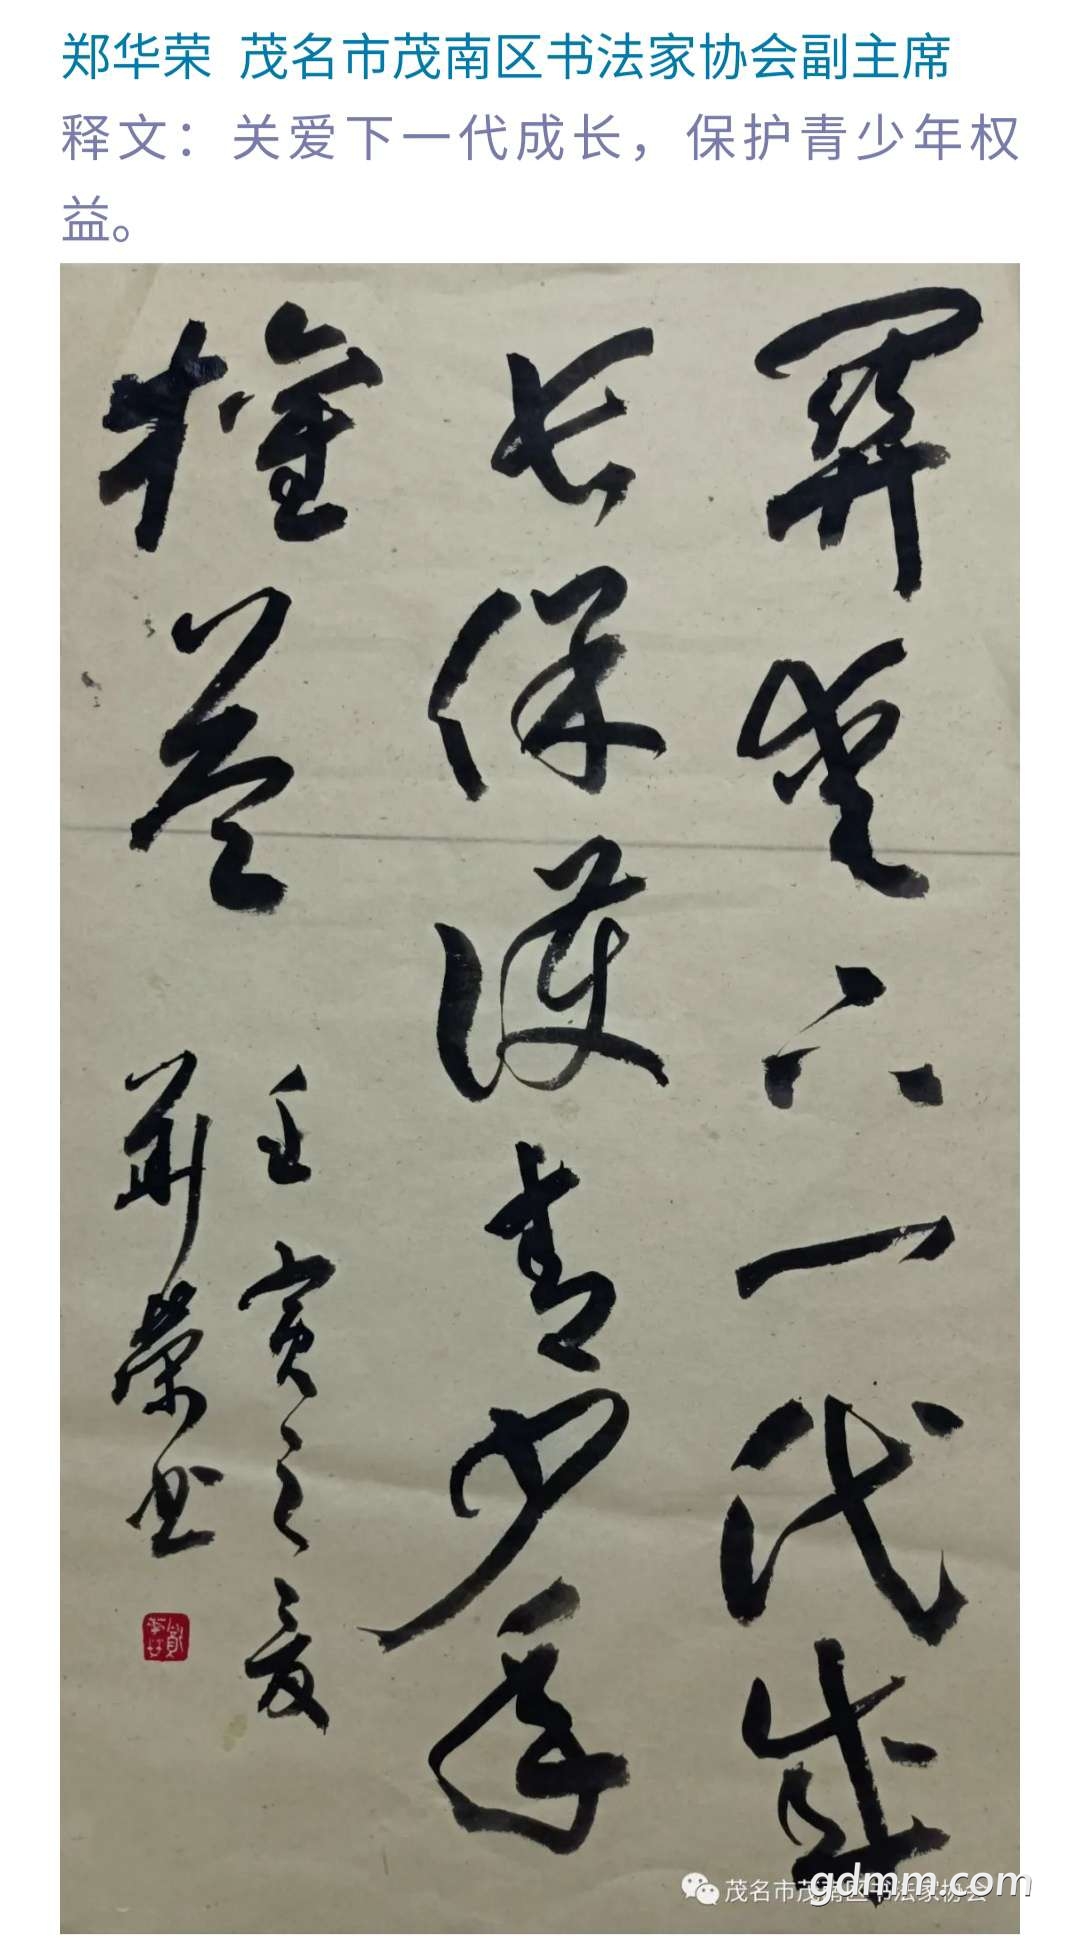 郑华荣 茂名市茂南区书法家协会副主席
释文：关爱下一代成长，保护青少年权
益。
関爱下一代成
长保護青少年
權益
壬寅之夏
華榮书
茂名市茂南区书法家协会
gdmm.com